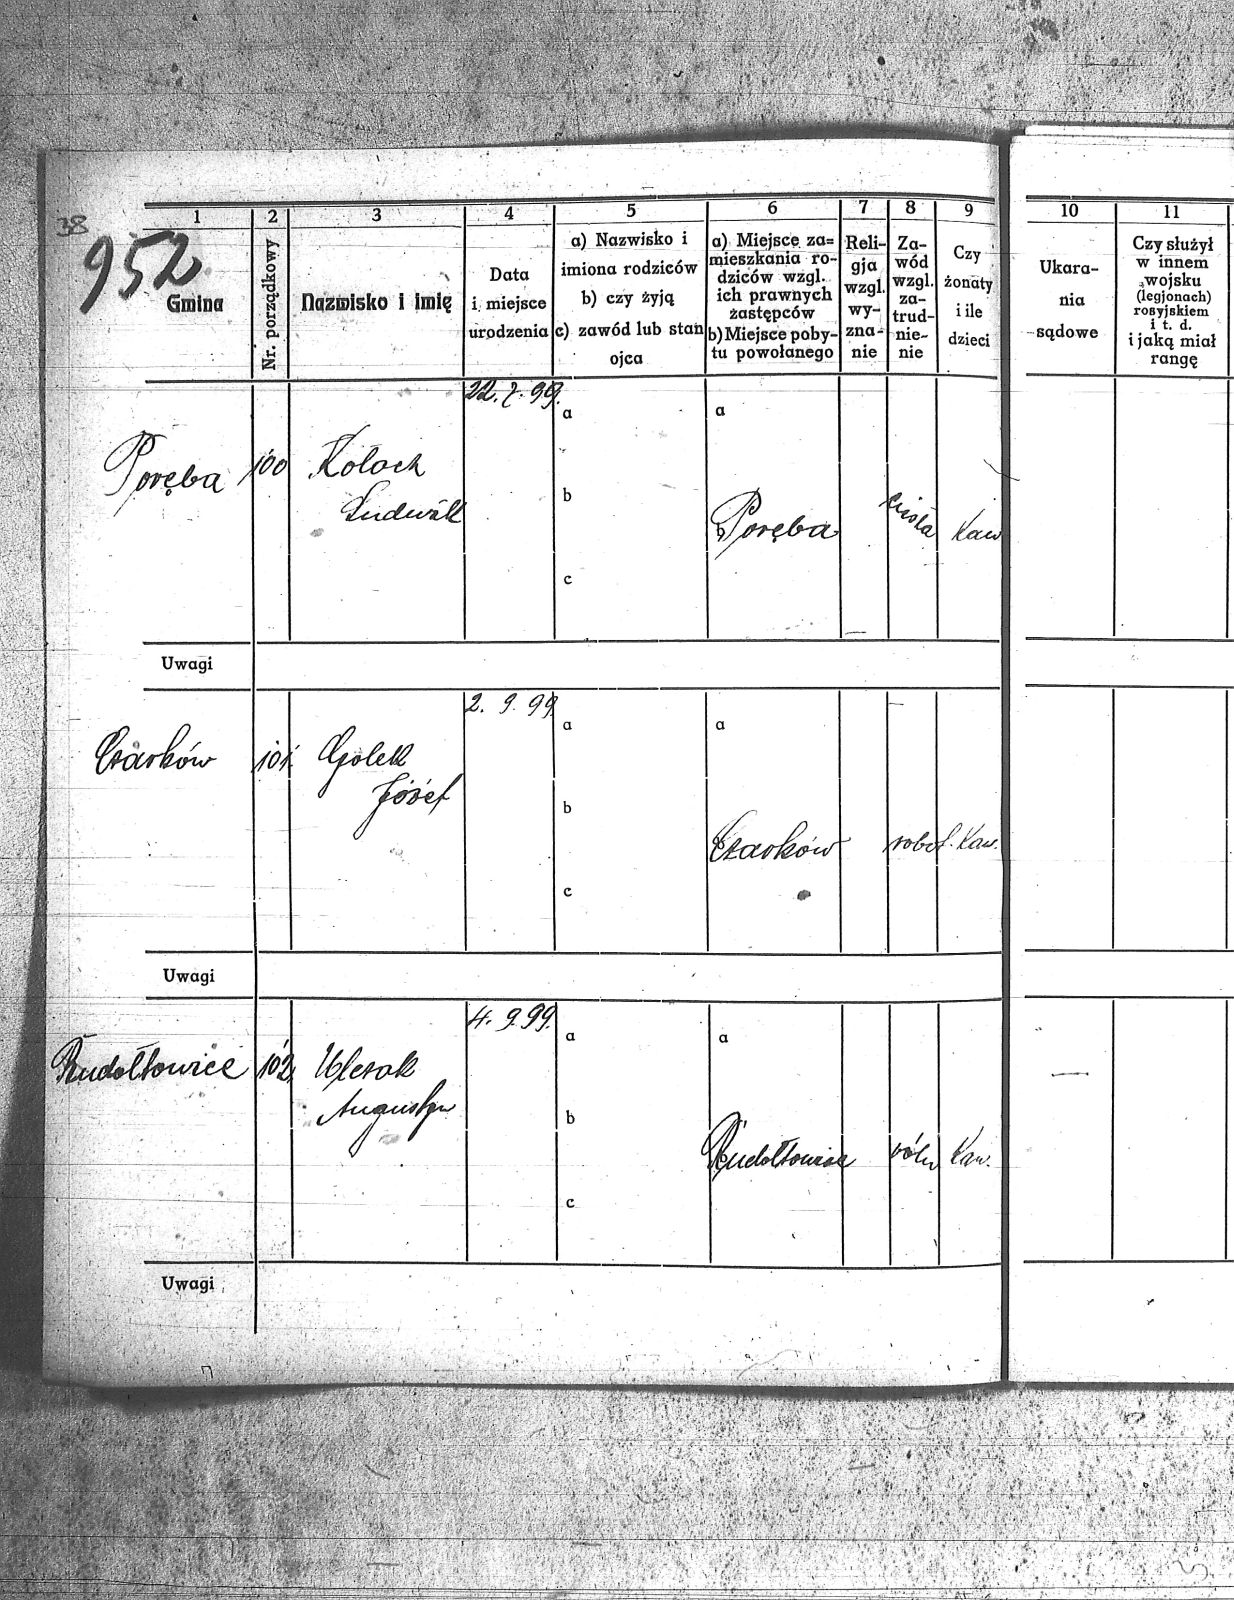 38
952
1 2 3 4 5 6 7 8 9 10 11
Gmina
Nr. porządkowy
Nazwisko i imię
Data
i miejsce
urodzenia
a) Nazwisko i
imiona rodziców
b) czy żyją
c) zawód lub stan
ojca
a) Miejsce za=
mieszkania ro-
dziców wzgl.
ich prawnych
zastępców
b) Miejsce poby-
tu powołanego
Reli-
gja
wzgl.
wy-
zna-
nie
Za-
wód
wzgl.
za-
trud-
nie-
nie
Czy
żonaty
i ile
dzieci
Ukara-
nia
sądowe
Czy służył
w innem
wojsku
(legjonach)
rosyjskiem
i t. d.
i jaką miał
rangę
22. 7. 99.
a a
Poręba 100 Kołoch
Ludwik
b
b Poręba cieśla Kaw
c
Uwagi
2. 9. 99.
a a
Czarków 101. Golek
Józef
b
b Czarków robot. Kaw.
c
Uwagi
4. 9. 99.
a a
Rudołtowice 102.
Augustyn
b
b Rudołtowice Kaw.
c
Uwagi